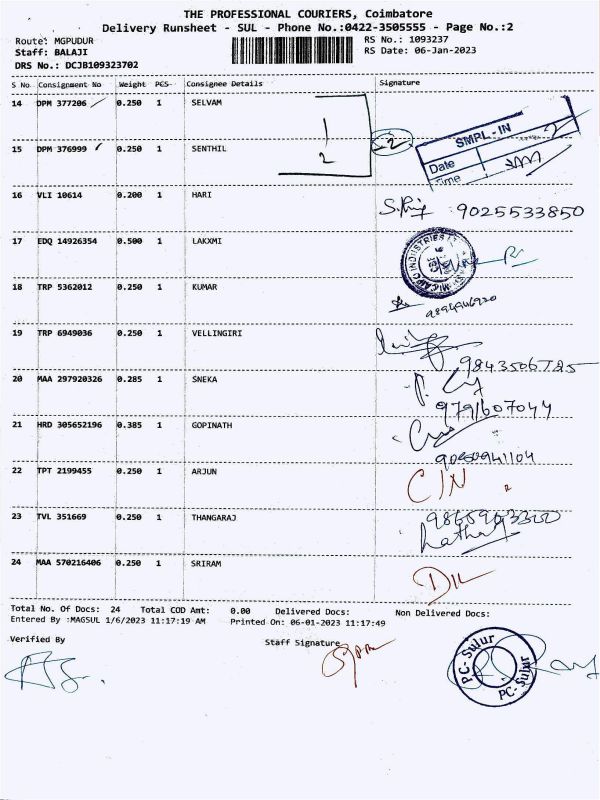 THE PROFESSIONAL COURIERS, Coimbatore
Delivery Runsheet - SUL - Phone No.:0422-3505555 - Page No.:2
Route: MGPUDUR
RS No.: 1093237
Staff: BALAJI
RS Date: 06-Jan-2023
DRS No.: DCJB109323702
S No Consignment No Weight PCS Consignee Details Signature
14 DPM 377206 0.250 1 SELVAM
1
2
15 DPM 376999 0.250 1 SENTHIL
2
SMPL-IN
Date
Time
16 VLI 10614 0.200 1 HARI
9025533850
17 EDQ 14926354 0.500 1 LAKXMI
18 TRP 5362012 0.250 1 KUMAR
19 TRP 6949036 0.250 1 VELLINGIRI
20 MAA 297920326 0.285 1 SNEKA
9791607044
21 HRD 305652196 0.385 1 GOPINATH
22 TPT 2199455 0.250 1 ARJUN
C/N
23 TVL 351669 0.250 1 THANGARAJ
24 MAA 570216406 0.250 1 SRIRAM
Total No. Of Docs: 24 Total COD Amt: 0.00 Delivered Docs: Non Delivered Docs:
Entered By :MAGSUL 1/6/2023 11:17:19 AM Printed On: 06-01-2023 11:17:49
Verified By
Staff Signature
PC-Sulur
PC-Sulur